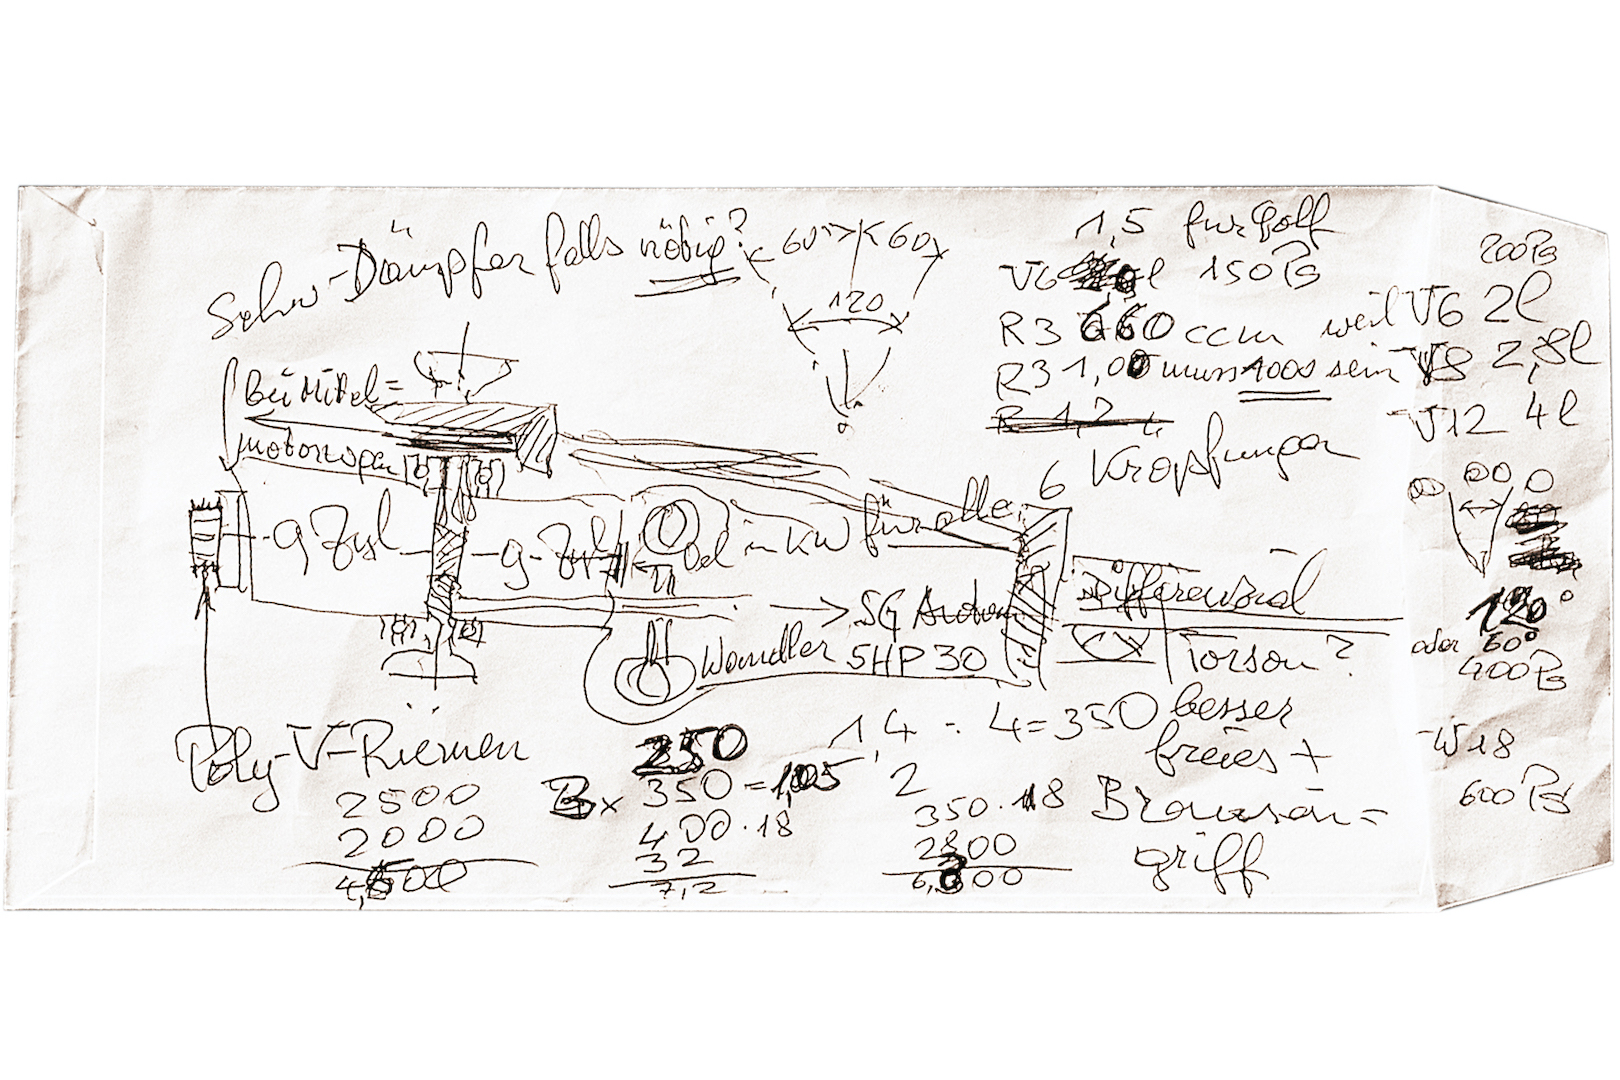 Schw-Dämpfer falls nötig?
60° 60
120
1,5 für Golf
V6 l 150 PS
R3 660 ccm weil V6 2l
R3 1,00 muss 1000 sein V8 2,8l
R 1,2 V12 4l
200 PS
6 Kröpfungen
bei Mittel=
motorwagen
9 Zyl 9-Zyl
Oel in KW für alle
→ SG Autom
Wandler 5HP30
Differenzial
Torson?
besser
freies +
Browsen=
griff
120°
oder 60°
400 PS
W18
600 PS
Poly-V-Riemen
2500
2000
250
350 = 1,05
400 · 18
32
7,2
1,4 : 4 = 350
2
350 · 18
2800
6,300